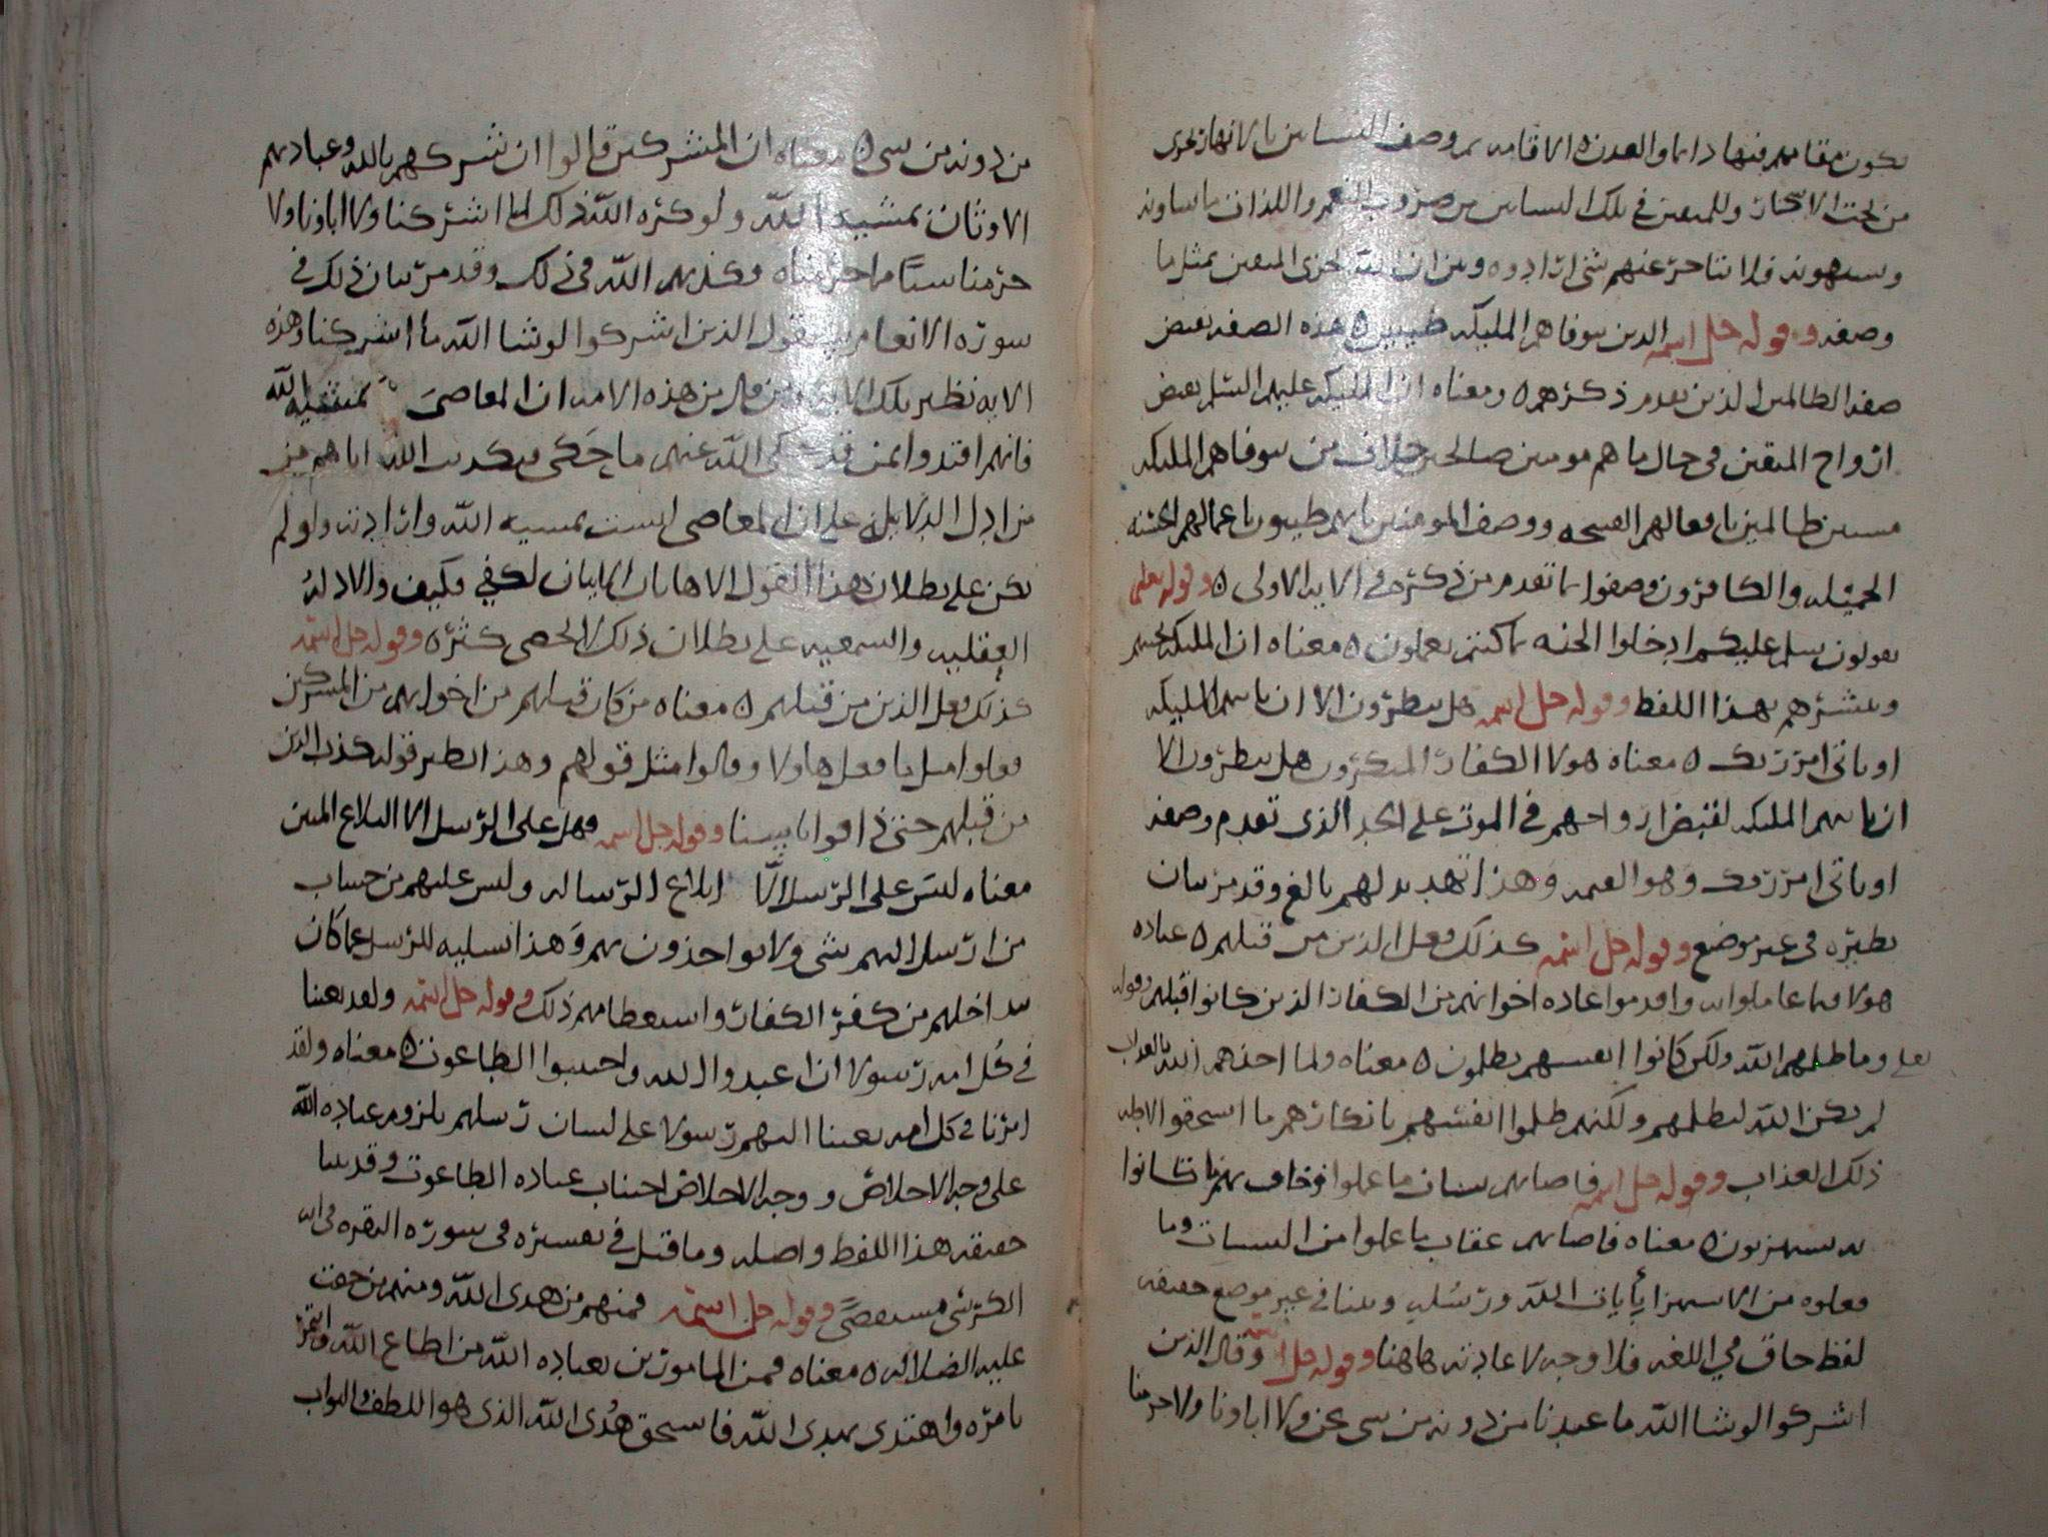 يكون مقامهم فيها دائما والعدن ٥ الاقامه ثم وصف البساتين بالانهار تجرى
من تحت الاشجار وللمتقين في تلك البساتين من ضروب النعم واللذات ما يشاونه
ويشتهونه فلا يتاخر عنهم شى ارادوه وبين ان الله يجزى المتقين بمثل ما
وصفه وقوله جل اسمه الذين تتوفاهم المليكه طيبين ٥ هذه الصفه نقيض
صفه الظالمين الذين تقدم ذكرهم ٥ ومعناه ان المليكه عليهم السلم تقبض
ارواح المتقين في حال ما هم مومنين صالحين خلاف من تتوفاهم المليكه
مسيين ظالمين بافعالهم القبيحه ووصف المومنين بانهم طيبون باعمالهم الحسنه
الجميله والكافرون وصفوا بما تقدم من ذكره في الايه الاولى ٥ وقوله تعلى
يقولون سلم عليكم ادخلوا الجنه بما كنتم تعملون ٥ معناه ان المليكه تحييهم
وتبشرهم بهذا اللفظ وقوله جل اسمه هل ينظرون الا ان ياتيهم المليكه
او ياتى امر ربك ٥ معناه هولا الكفار المنكرون هل ينظرون الا
ان ياتيهم المليكه لقبض ارواحهم في الموت على الحد الذى تقدم وصفه
او ياتى امر ربك وهو القيمه وهذا تهديد لهم بالغ وقد مر بيان
نظيره في غير موضع وقوله جل اسمه كذلك فعل الذين من قبلهم ٥ عباده
هولا فيما عاملوا به واقدموا عاده اخوانهم من الكفار الذين كانوا قبلهم وقوله
تعلى وما ظلمهم الله ولكن كانوا انفسهم يظلمون ٥ معناه ولما اخذهم الله بالعذاب
لم يكن الله ليظلمهم ولكنهم ظلموا انفسهم بانكارهم ما استحقوا لاجله
ذلك العذاب وقوله جل اسمه فاصابهم سيات ما عملوا وحاق بهم ما كانوا
به يستهزون ٥ معناه فاصابهم عقاب ما عملوا من السيات وما
فعلوه من الاستهزا بأيات الله ورسله وبينا في غير موضع حقيقه
لفظ حاق في اللغه فلا وجه لاعادته هاهنا وقوله جل اسمه وقال الذين
اشركوا لو شا الله ما عبدنا من دونه من شى نحن ولا اباونا ولا حرمنا
من دونه من شى ٥ معناه ان المشركين قالوا ان شركهم بالله وعبادتهم
الاوثان بمشيه الله ولو كره الله ذلك لما اشركنا ولا اباونا ولا
حرمنا شيئا مما حرمناه وكذبهم الله في ذلك وقد مر بيان ذلك في
سوره الانعام سيقول الذين اشركوا لو شا الله ما اشركنا وهذه
الايه نظير تلك الايه من قال من هذه الامه ان المعاصى بمشيه الله
فانهم اقتدوا بمن قد حكى الله عنهم ما حكى وتكذيب الله اياهم من
من ادل الدلايل على ان المعاصى ليست بمشيه الله وارادته ولو لم
يكن على بطلان هذا القول الا هاتان الايتان لكفى فكيف والادله
العقليه والسمعيه على بطلان ذلك لا تحصى كثره وقوله جل اسمه
كذلك فعل الذين من قبلهم ٥ معناه من كان قبلهم من اخوانهم من المشركين
فعلوا مثل ما فعل هاولا وقالوا مثل قولهم وهذا نظير قوله كذب الذين
من قبلهم حتى ذاقوا باسنا وقوله جل اسمه فهل على الرسل الا البلاغ المبين
معناه ليس على الرسل الا ابلاغ الرساله وليس عليهم من حساب
من ارسل اليهم شى ولا يواخذون بهم وهذا تسليه للرسل عما كان
يداخلهم من كفر الكفار واستعظامهم ذلك وقوله جل اسمه ولقد بعثنا
في كل امه رسولا ان اعبدوا الله واجتنبوا الطاغوت ٥ معناه ولقد
امرنا في كل امه بعثنا اليهم رسولا على لسان رسلهم بلزوم عباده الله
على وجه الاخلاص ووجه الاخلاص اجتناب عباده الطاغوت وقد بينا
حقيقه هذا اللفظ واصله وما قيل في تفسيره في سوره البقره في ايه
الكرسى مستقصىً وقوله جل اسمه فمنهم من هدى الله ومنهم من حقت
عليه الضلاله ٥ معناه فمن المامورين بعباده الله من اطاع الله وائتمر
بامره واهتدى بهدى الله فاستحق هُدى الله الذى هو اللطف والثواب